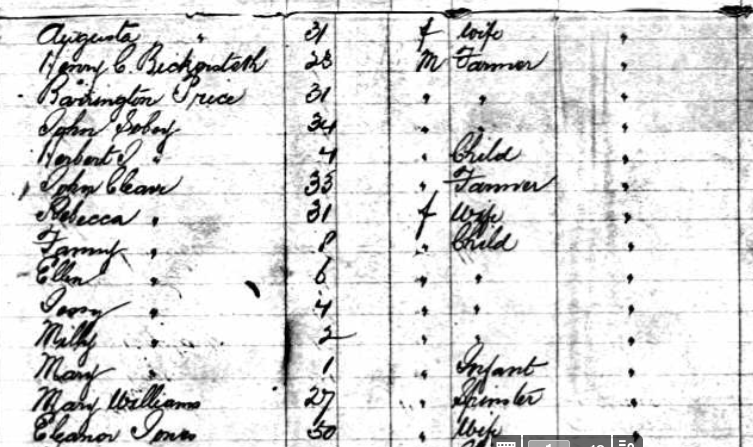 Augusta " 31 f Wife "
Henry C. Bickersteth 23 M Farmer "
Barrington Price 31 " " "
John 34 " " "
Herbert J " 4 " Child "
John Cleave 33 " Farmer "
Rebecca " 31 f Wife "
Fanny " 8 " Child "
Ellen " 6 " " "
" 4 " " "
Milly " 2 " " "
Mary " 1 " Infant "
Mary Williams 27 " Spinster "
Eleanor Jones 30 " Wife